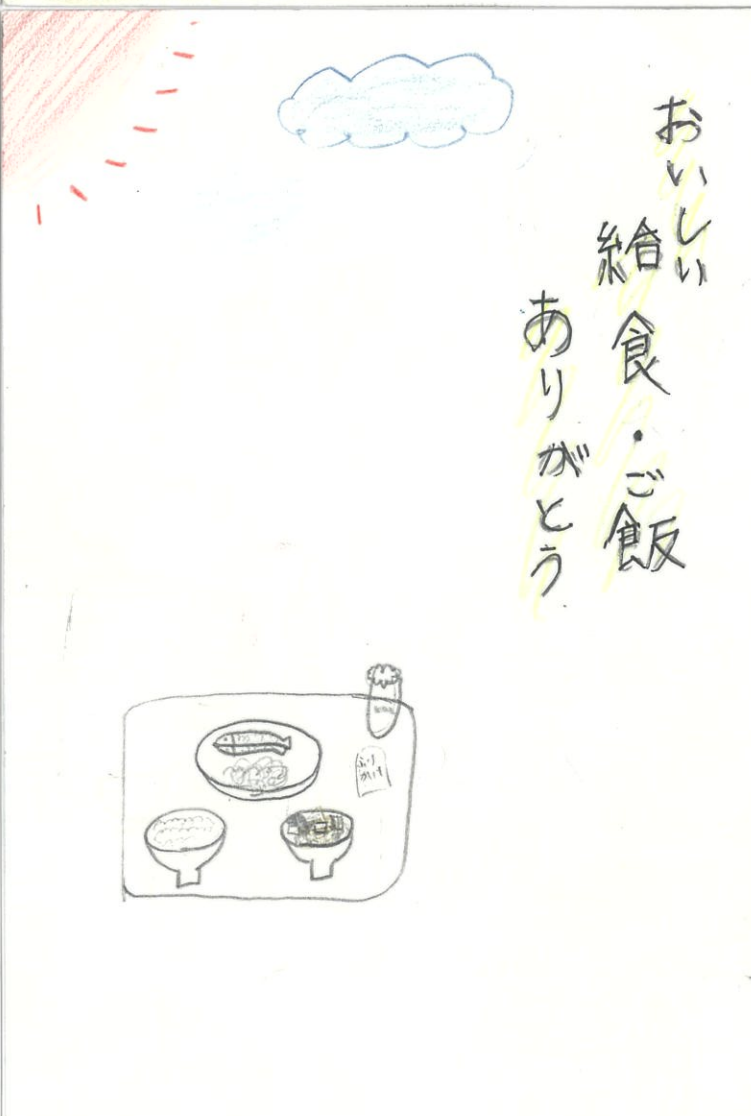 おいしい
給食・ご飯
ありがとう
ふり
かけ